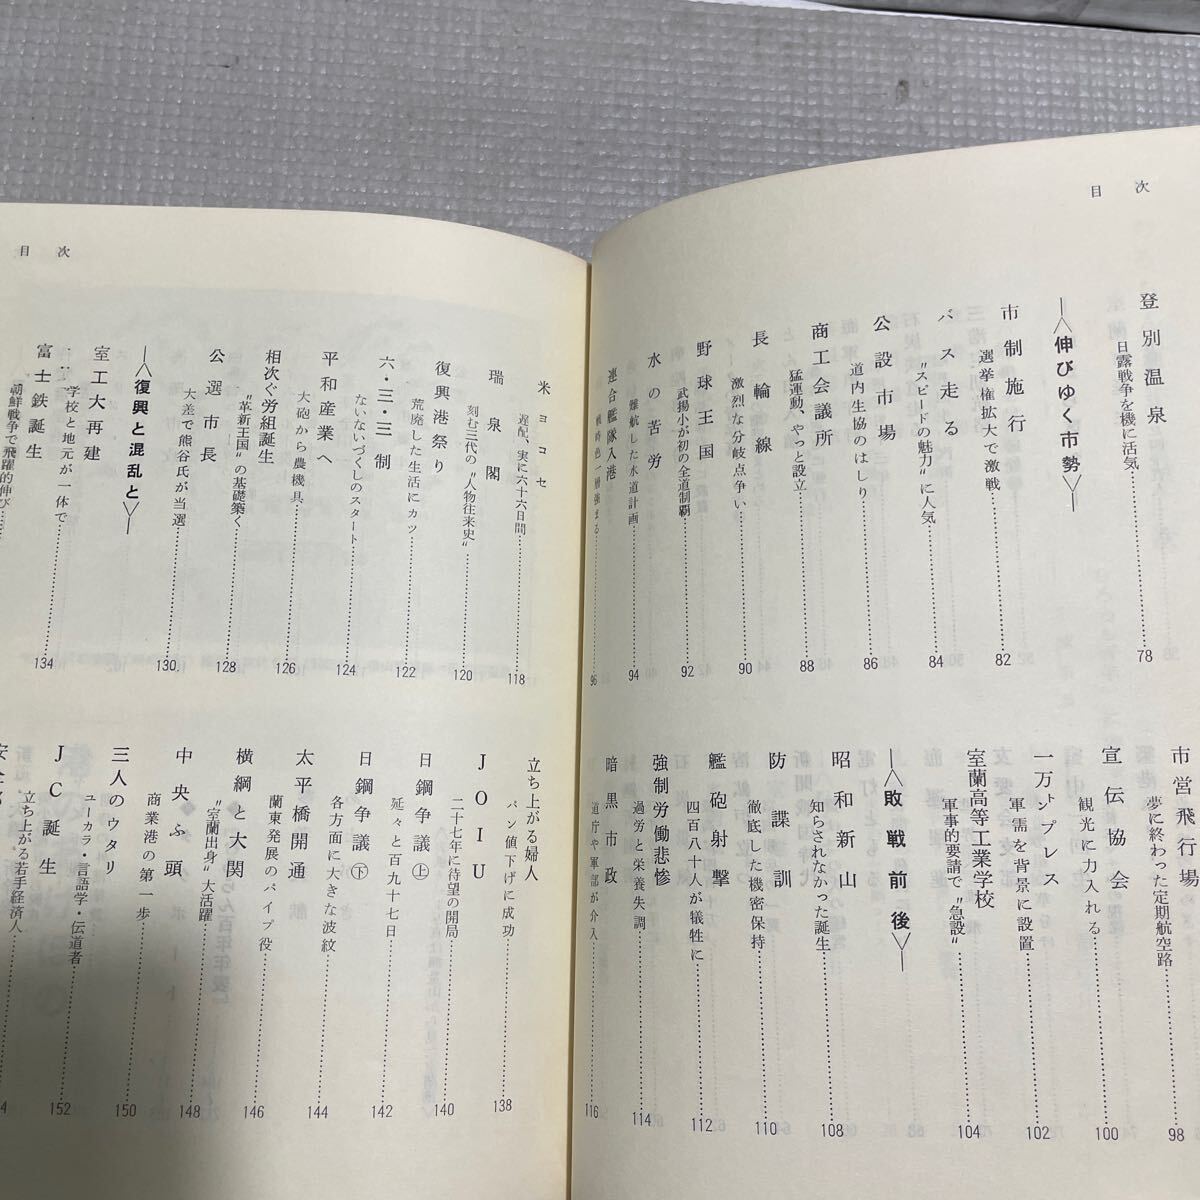 目次
登別温泉
日露戦争を機に活気……78
―〈伸びゆく市勢〉―
市制施行
選挙権拡大で激戦……82
バス走る
〝スピードの魅力〟に人気……84
公設市場
道内生協のはしり……86
商工会議所
猛運動、やっと設立……88
長輪線
激烈な分岐点争い……90
野球王国
武揚小が初の全道制覇……92
水の苦労
難航した水道計画……94
連合艦隊入港
戦時色一層強まる……96
市営飛行場
夢に終わった定期航空路……98
宣伝協会
観光に力入れる……100
一万㌧プレス
軍需を背景に設置……102
室蘭高等工業学校
軍事的要請で〝急設〟……104
―〈敗戦前後〉―
昭和新山
知らされなかった誕生……108
防諜訓
徹底した機密保持……110
艦砲射撃
四百八十人が犠牲に……112
強制労働悲惨
過労と栄養失調……114
暗黒市政
道庁や軍部が介入……116
目次
米ヨコセ
遅配、実に六十六日間……118
瑞泉閣
刻む三代の〝人物往来史〟……120
復興港祭り
荒廃した生活にカツ……122
六・三・三制
ないないづくしのスタート……124
平和産業へ
大砲から農機具……126
相次ぐ労組誕生
〝革新王国〟の基礎築く……128
公選市長
大差で熊谷氏が当選……130
―〈復興と混乱と〉―
室工大再建
学校と地元が一体で……134
富士鉄誕生
朝鮮戦争で飛躍的伸び
立ち上がる婦人
パン値下げに成功……138
JOIU
二十七年に待望の開局……140
日鋼争議㊤
延々と百九十七日……142
日鋼争議㊦
各方面に大きな波紋……144
太平橋開通
蘭東発展のパイプ役……146
横綱と大関
〝室蘭出身〟大活躍……148
中央ふ頭
商業港の第一歩……150
三人のウタリ
ユーカラ・言語学・伝道者……152
JC誕生
立ち上がる若手経済人